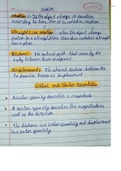 Motion
Motion :- If the object change its location
according to time, then it is called in motion.
Straight line motion :- When the object change
motion in a straight line, then it is called straight
line motion.
Distance :- The actual path that cover by the
body between two endpoint.
Displacement :- The shortest distance between the
two points known as displacement.
Scalar and Vector Quantities
A scalar quantity describes a magnitude.
A vector quantity describes the magnitude as
well as the direction.
The distance is a scalar quantity and displacement is
a vector quantity.